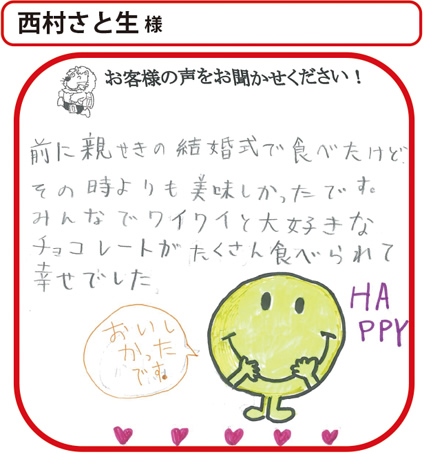 西村さと生 様
お客様の声をお聞かせください！
前に親せきの結婚式で食べたけど、
その時よりも美味しかったです。
みんなでワイワイと大好きな
チョコレートがたくさん食べられて
幸せでした
HA
PPY
おいし
かった
です。